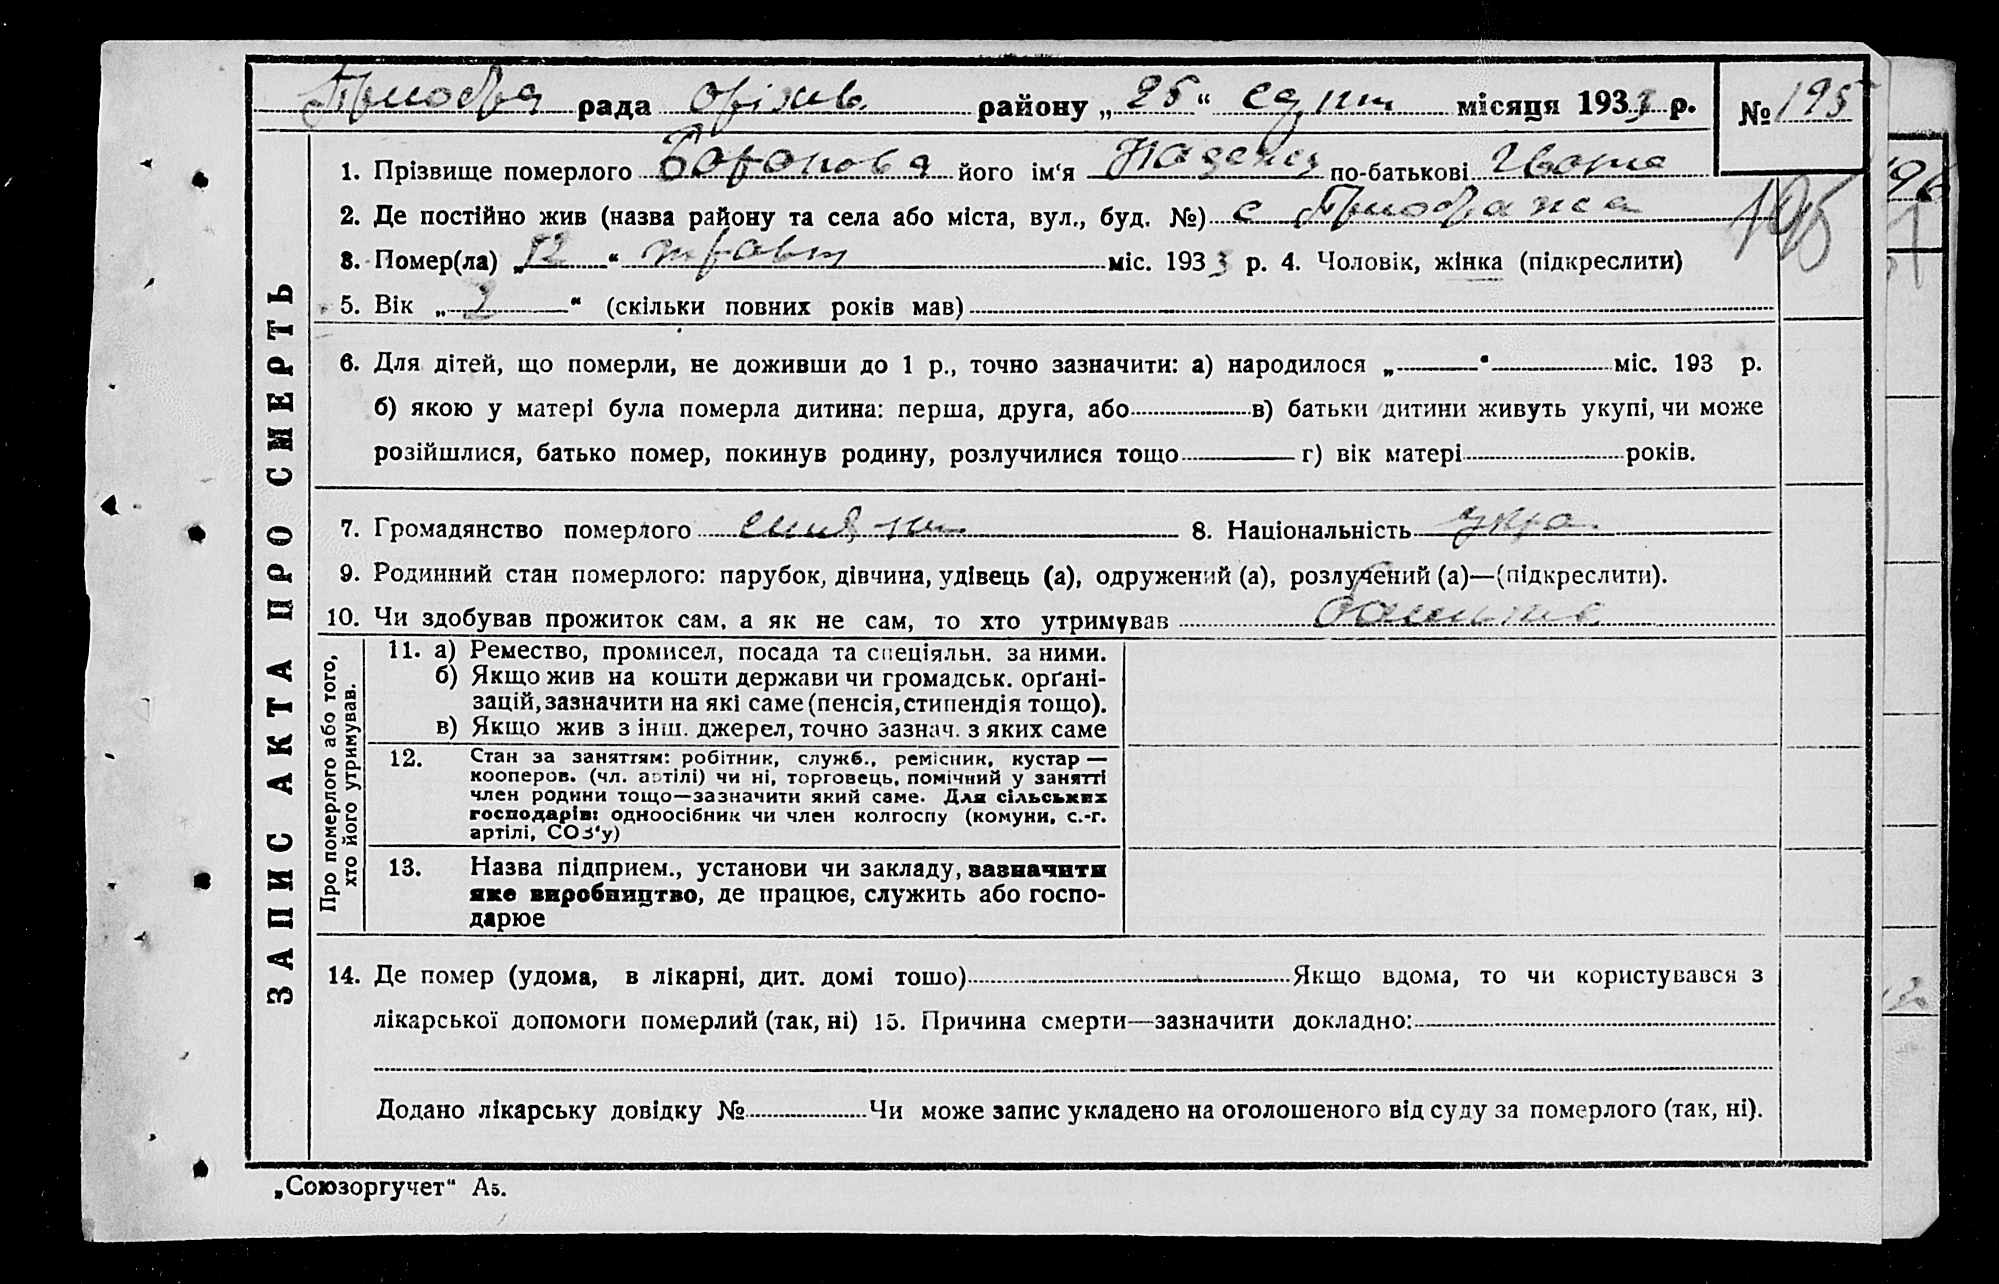 рада районy „25“ місяця 1933 р. № 195
1. Прізвище померлого його ім‘я по-батькові
195
2. Де постійно жив (назва району та села або міста, вул., буд. №) с
3. Помер(ла) „12“ травн міс. 1933 р. 4. Чоловік, жінка (підкреслити)
5. Вік „ “ (скільки повних років мав)
6. Для дітей, що померли, не доживши до 1 р., точно зазначити: а) народилося „ “ міс. 193 р.
б) якою у матері була померла дитина: перша, друга, або в) батьки дитини живуть укупі, чи може
розійшлися, батько помер, покинув родину, розлучилися тощо г) вік матері років.
7. Громадянство померлого 8. Національність укра.
9. Родинний стан померлого: парубок, дівчина, удівець (а), одружений (а), розлучений (а)—(підкреслити).
10. Чи здобував прожиток сам, а як не сам, то хто утримував
ЗАПИС АКТА ПРО СМЕРТЬ
Про померлого або того,
хто його утримував.
11. а) Ремество, промисел, посада та спеціяльн. за ними.
б) Якщо жив на кошти держави чи громадськ. орґані-
зацій, зазначити на які саме (пенсія, стипендія тощо).
в) Якщо жив з інш. джерел, точно зазнач. з яких саме
12. Стан за заняттям: робітник, служб., ремісник, кустар —
кооперов. (чл. артілі) чи ні, торговець, помічний у занятті
член родини тощо—зазначити який саме. Для сільських
господарів: одноосібник чи член колгоспу (комуни, с.-г.
артілі, СОЗ‘у)
13. Назва підприєм., установи чи закладу, зазначити
яке виробництво, де працює, служить або госпо-
дарює
14. Де помер (удома, в лікарні, дит. домі тошо) Якщо вдома, то чи користувався з
лікарської допомоги померлий (так, ні) 15. Причина смерти—зазначити докладно:
Додано лікарську довідку № Чи може запис укладено на оголошеного від суду за померлого (так, ні).
„Союзоргучет“ А5.